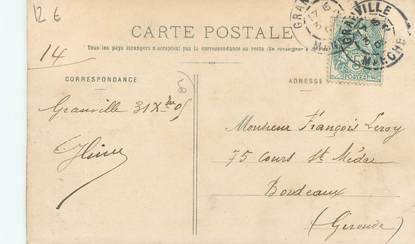 12 6
14
CARTE POSTALE
Tous les pays étrangers n'acceptent pas la correspondance au recto (Se renseigner à la
CORRESPONDANCE
ADRESSE
GRANVILLE
MANCHE
Granville 31 Xbre 05
Monsieur François Leroy
75 cours St Médard
Bordeaux
(Gironde)